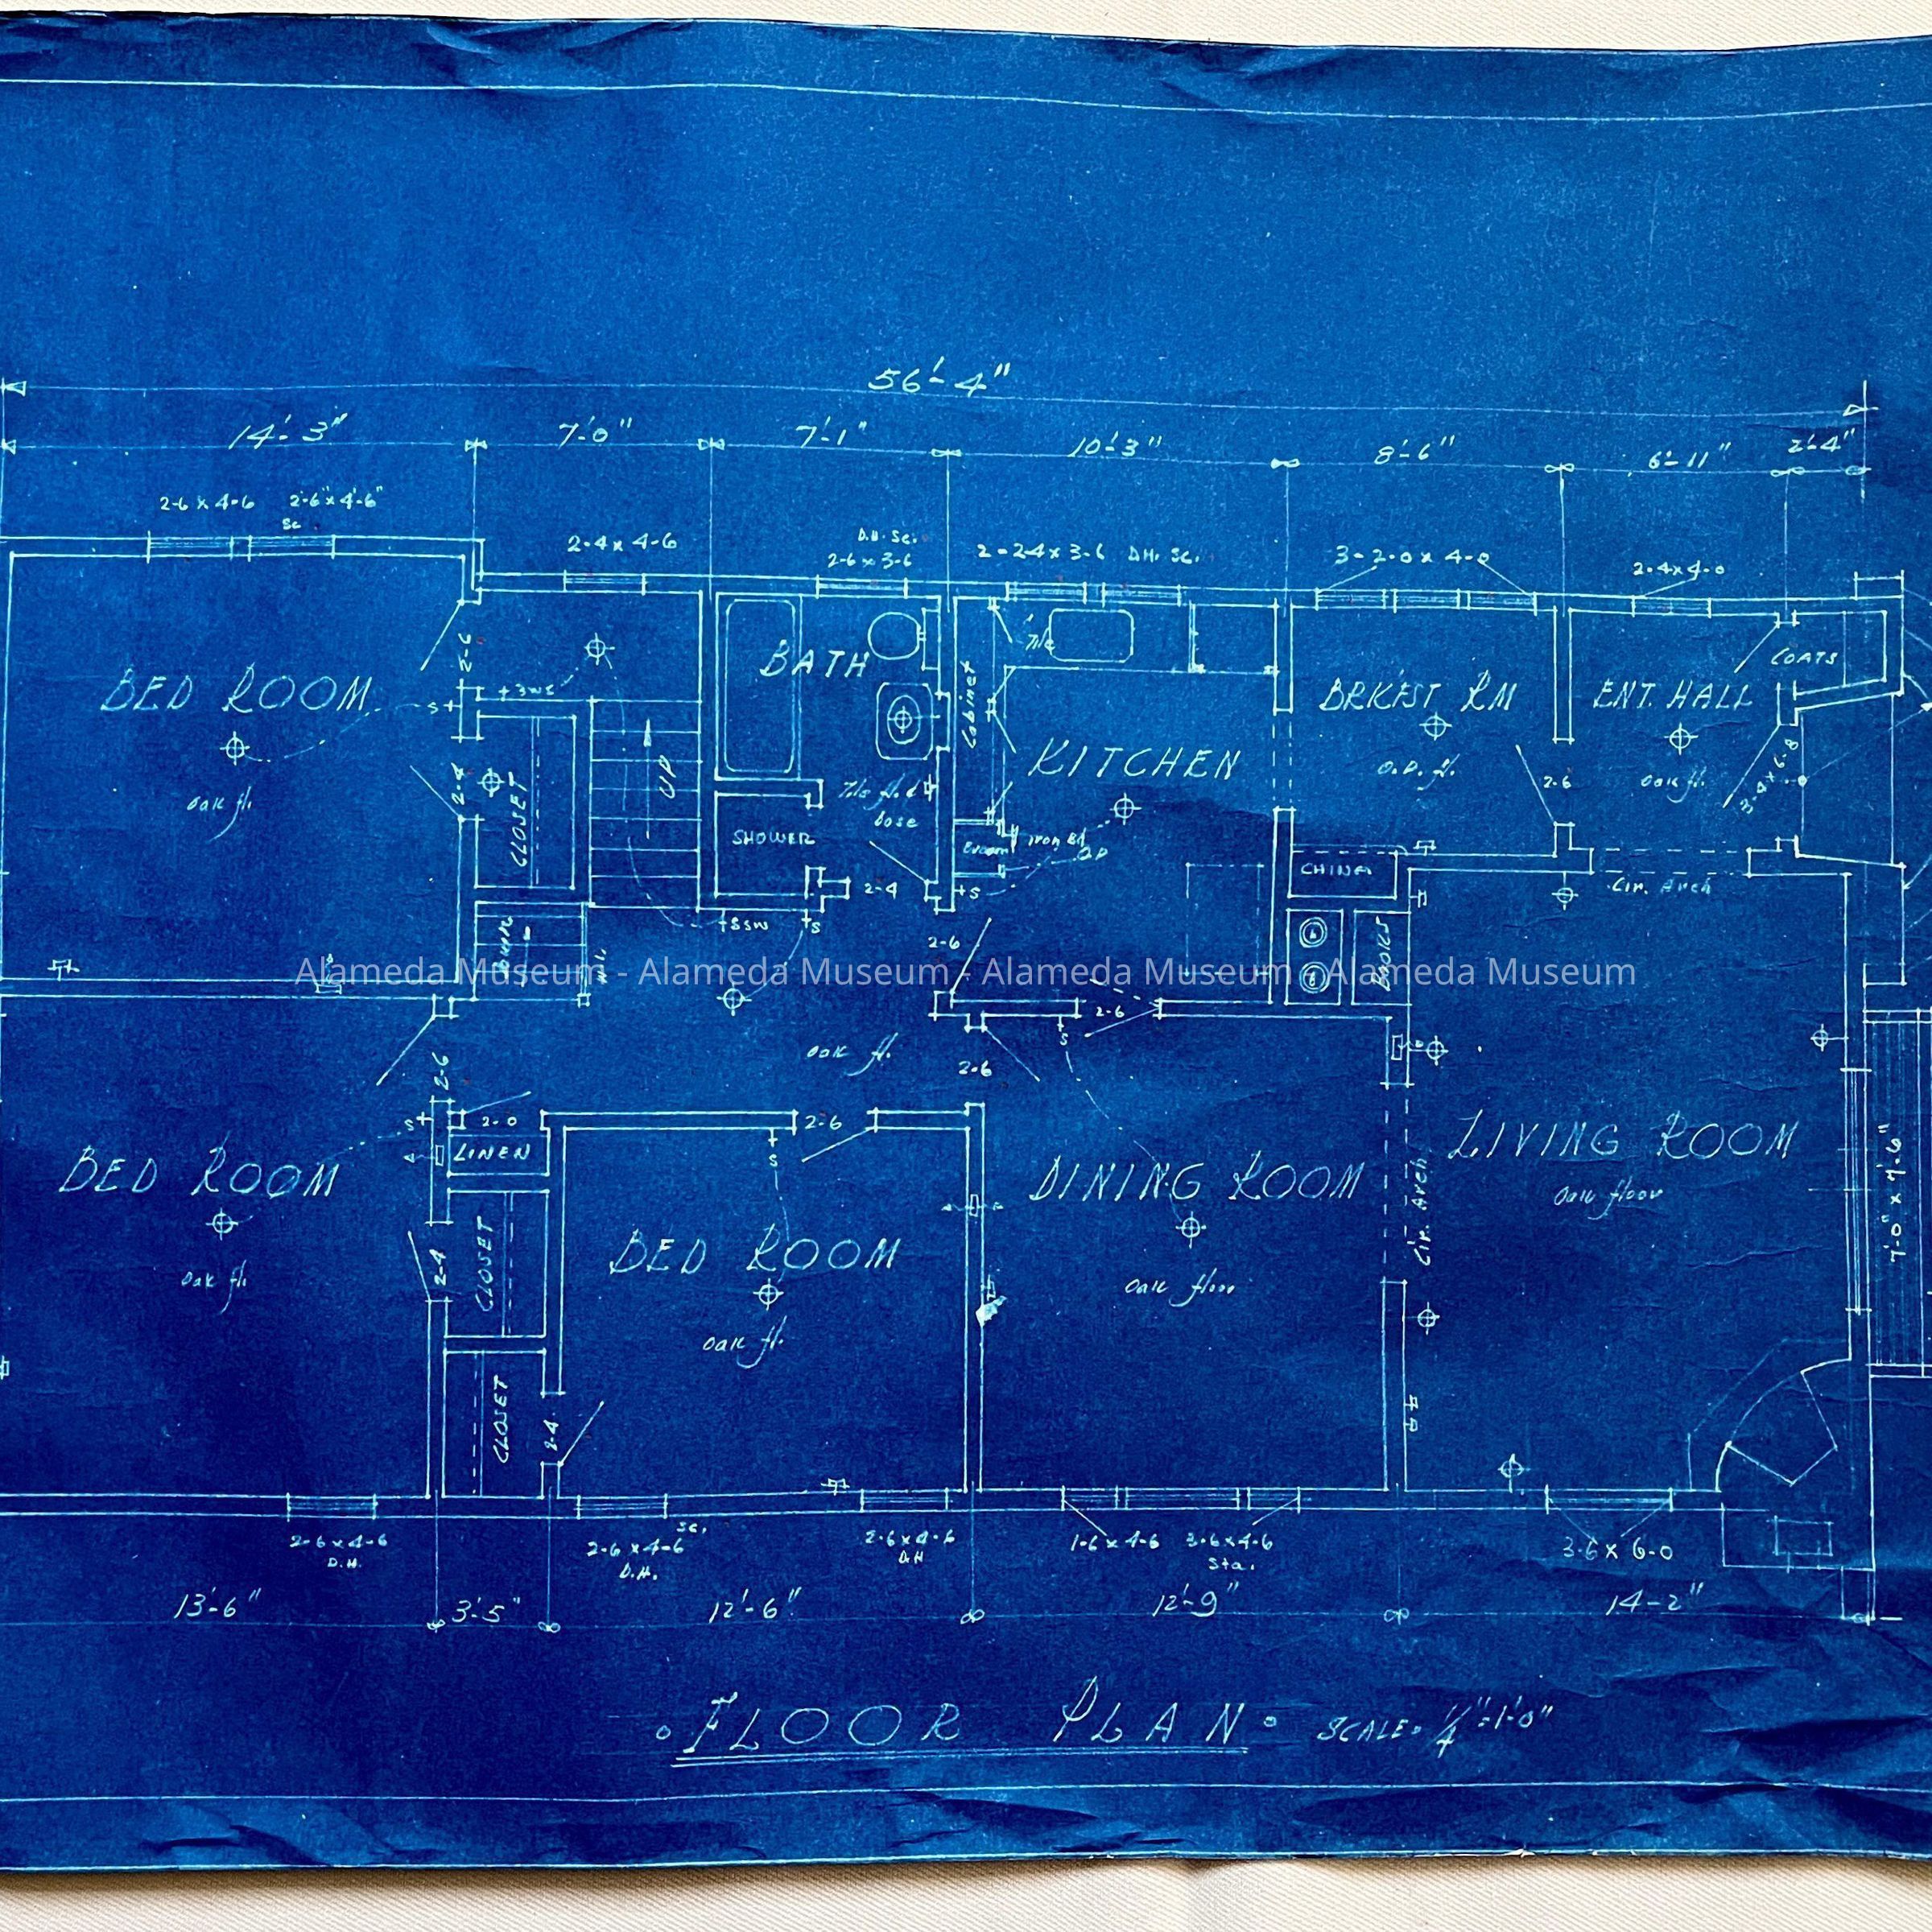 56'-4"
14'-3" 7'-0" 7'-1" 10'-3" 8'-6" 6'-11" 2'-4"
2-6 x 4-6 2'-6" x 4'-6"
Sc
2-4 x 4-6
D.H. Sc.
2-6 x 3-6
2=2-4 x 3-6 D.H. Sc.
3-2-0 x 4-0
2-4 x 4-0
Tile
COATS
2-6
BATH
Cabinet
BED ROOM
S
BRKFST RM
ENT. HALL
UP
KITCHEN
2-4
CLOSET
Oak fl.
O.P. fl.
2-6
oak fl.
3-4 x 6-8
Tile fl. &
base
SHOWER
Broom
Iron Bd
O.P
CHINA
Cir. Arch
2-4
S
S
2-6
BOOKS
Down
Alameda Museum - Alameda Museum - Alameda Museum - Alameda Museum
2-6
S
oak fl.
2-6
2-6
S
2-0
2-6
LINEN
S
BED ROOM
DINING ROOM
LIVING ROOM
Oak floor
7'-0" x 4'-6"
Cir. Arch
Oak fl.
2-4
CLOSET
BED ROOM
Oak floor
oak fl.
CLOSET
2-4
2-6 x 4-6
D.H.
Sc.
2-6 x 4-6
D.H.
2-6 x 4-6
D.H
1-6 x 4-6 3-6 x 4-6
Sta.
3-6 x 6-0
13'-6" 3'-5" 12'-6" 12'-9" 14-2"
FLOOR PLAN SCALE= 1/4"=1'-0"